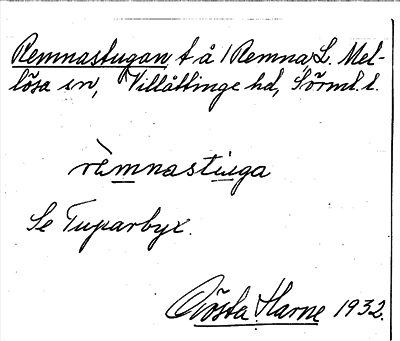 Remnastugan t å 1 Remna, L. Mel-
lösa sn, Villåttinge hd, Sörml. l.
rèmnastuga
Se Tuparbyx.
Gösta Harne 1932.